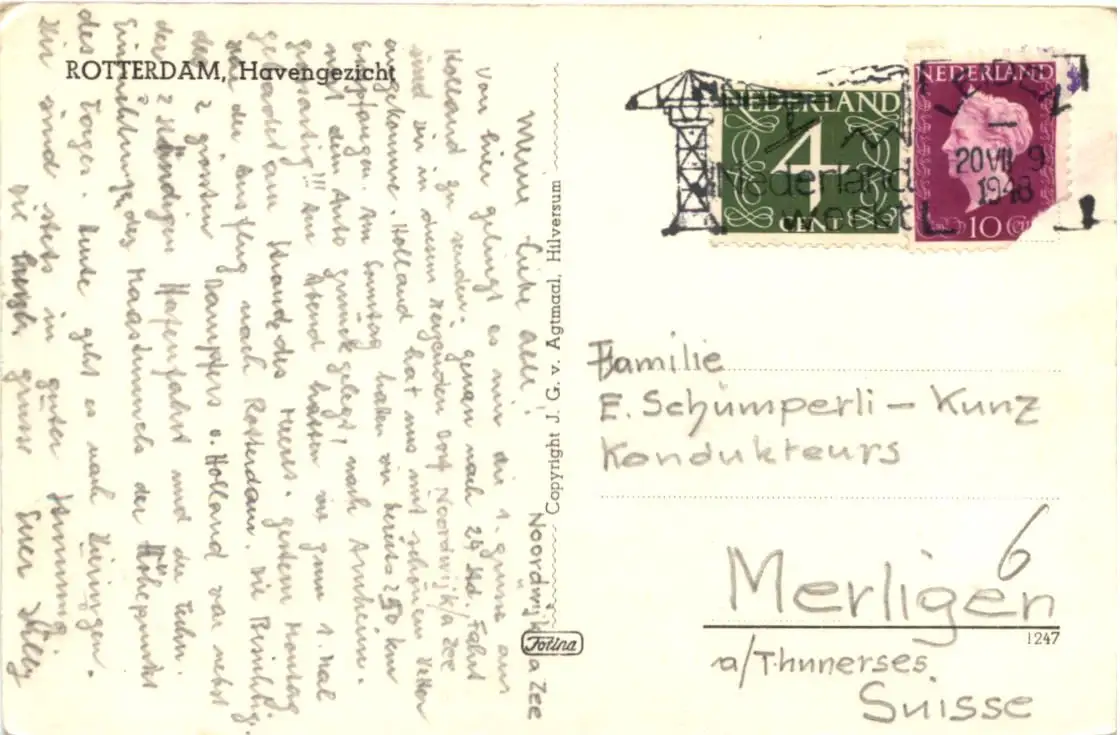 ROTTERDAM, Havengezicht
Noordwijk a Zee
Meine Liebe alle!
Von hier gelingt es mir die 1. Grüsse aus
Holland zu senden. Genau nach 24 Std. Fahrt
sind wir in diesem reizenden Dorf Noordwijk a/Zee
angekommen. Holland hat uns mit schönem Wetter
Empfangen. Am Sonntag haben wir bereits 250 km
mit dem Auto zurück gelegt nach Arnheim.
grossartig!!! Am Abend hatten wir zum 1. Mal
gebadet am Strande des Meeres. Gestern Montag
war der Ausflug nach Rotterdam. Die Besichtig.
der 2 grössten Dampfers v. Holland war nebst
der 2 stündigen Hafenfahrt und der techn.
Einrichtungen des Maastunnels der Höhepunkt
des Tages. Heute geht es nach Wieringen.
Wir sind stets in guter Stimmung.
Die herzl. Grüsse Euer Willy
Copyright J. G. v. Agtmaal, Hilversum
Fotina
NEDERLAND
4
CENT
NEDERLAND
10 C
LEIDEN
20 VII 9
1948
Nederland
werkt
Familie
E. Schümperli - Kunz
Kondukteurs
6
Merligen
1247
a/Thunersee
Suisse